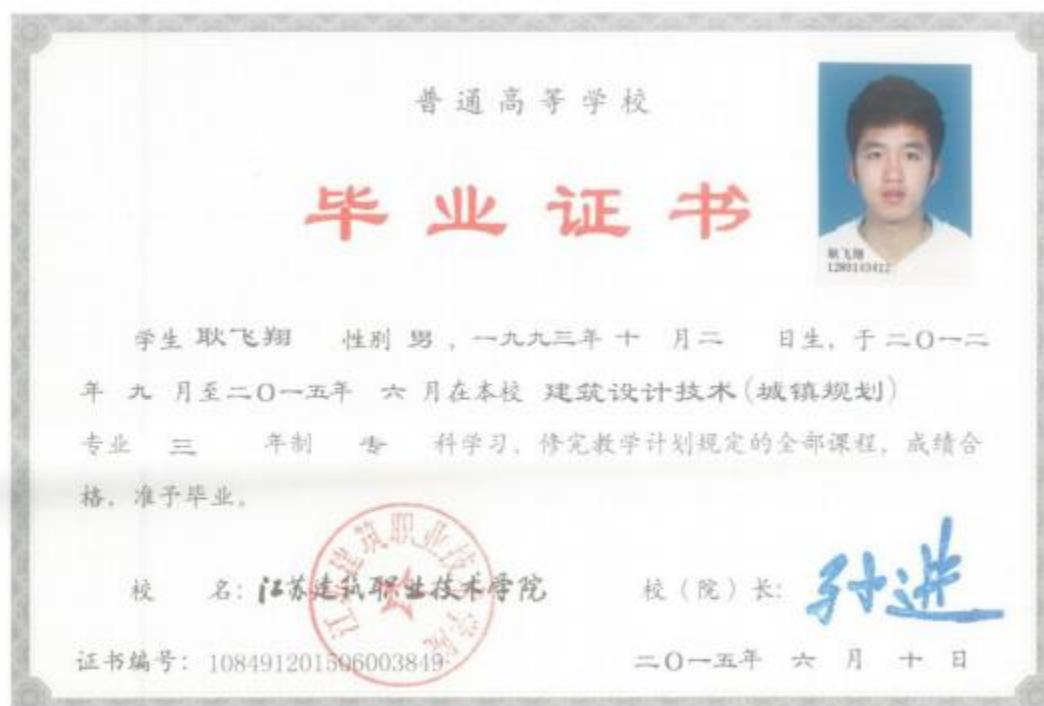 普通高等学校
毕业证书
耿飞翔
1280143412
学生 耿飞翔 性别 男 ，一九九三年 十 月二 日生，于 二〇一二
年 九 月至二〇一五年 六 月在本校 建筑设计技术(城镇规划)
专业 三 年制 专 科学习，修完教学计划规定的全部课程，成绩合
格，准予毕业。
江苏建筑职业技术学院
校 名：江苏建筑职业技术学院 校（院）长：孙进
证书编号：108491201506003849 二〇一五年 六 月 十 日